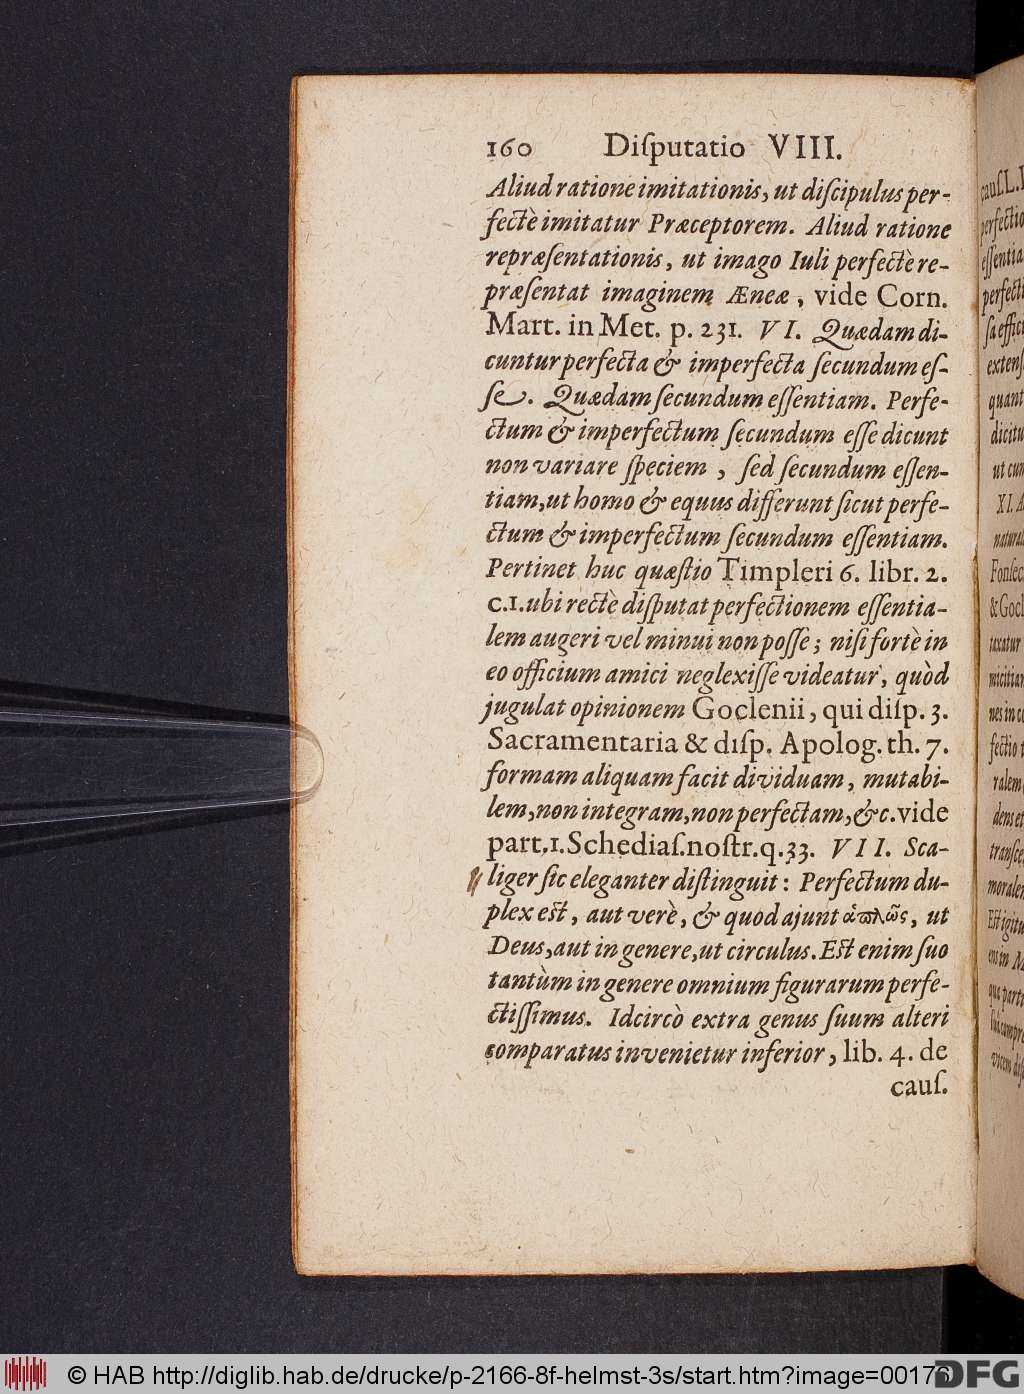 160 Diſputatio VIII.
Aliud ratione imitationis, ut diſcipulus per-
fectè imitatur Præceptorem. Aliud ratione
repræſentationis, ut imago Iuli perfectè re-
præſentat imaginem Æneæ, vide Corn.
Mart. in Met. p. 231. VI. Quædam di-
cuntur perfecta & imperfecta ſecundum eſ-
ſe. Quædam ſecundum eſſentiam. Perfe-
ctum & imperfectum ſecundum eſſe dicunt
non variare ſpeciem, ſed ſecundum eſſen-
tiam, ut homo & equus differunt ſicut perfe-
ctum & imperfectum ſecundum eſſentiam.
Pertinet huc quæſtio Timpleri 6. libr. 2.
c.1. ubi rectè diſputat perfectionem eſſentia-
lem augeri vel minui non poſſe; niſi fortè in
eo officium amici neglexiſſe videatur, quòd
jugulat opinionem Goclenii, qui diſp. 3.
Sacramentaria & diſp. Apolog. th. 7.
formam aliquam facit dividuam, mutabi-
lem, non integram, non perfectam, &c. vide
part. 1. Schediaſ. noſtr. q. 33. VII. Sca-
liger ſic eleganter diſtinguit: Perfectum du-
plex eſt, aut verè, & quod ajunt ἁπλῶς, ut
Deus, aut in genere, ut circulus. Eſt enim ſuo
tantùm in genere omnium figurarum perfe-
ctiſſimus. Idcircò extra genus ſuum alteri
comparatus invenietur inferior, lib. 4. de
cauſ.
cauſ. L. I
perfectio
eſſentia
perfecti
ſa effici
extenſ
quant
dicitu
ut cum
XI. A
natural
Fonſec
& Gocl
taxatur
micitiam
nes in co
fectio t
ralem
dens et
tranſce
moralem
Eſt igitu
ens in M
qua parti
vocem diſ
© HAB http://diglib.hab.de/drucke/p-2166-8f-helmst-3s/start.htm?image=00176
DFG